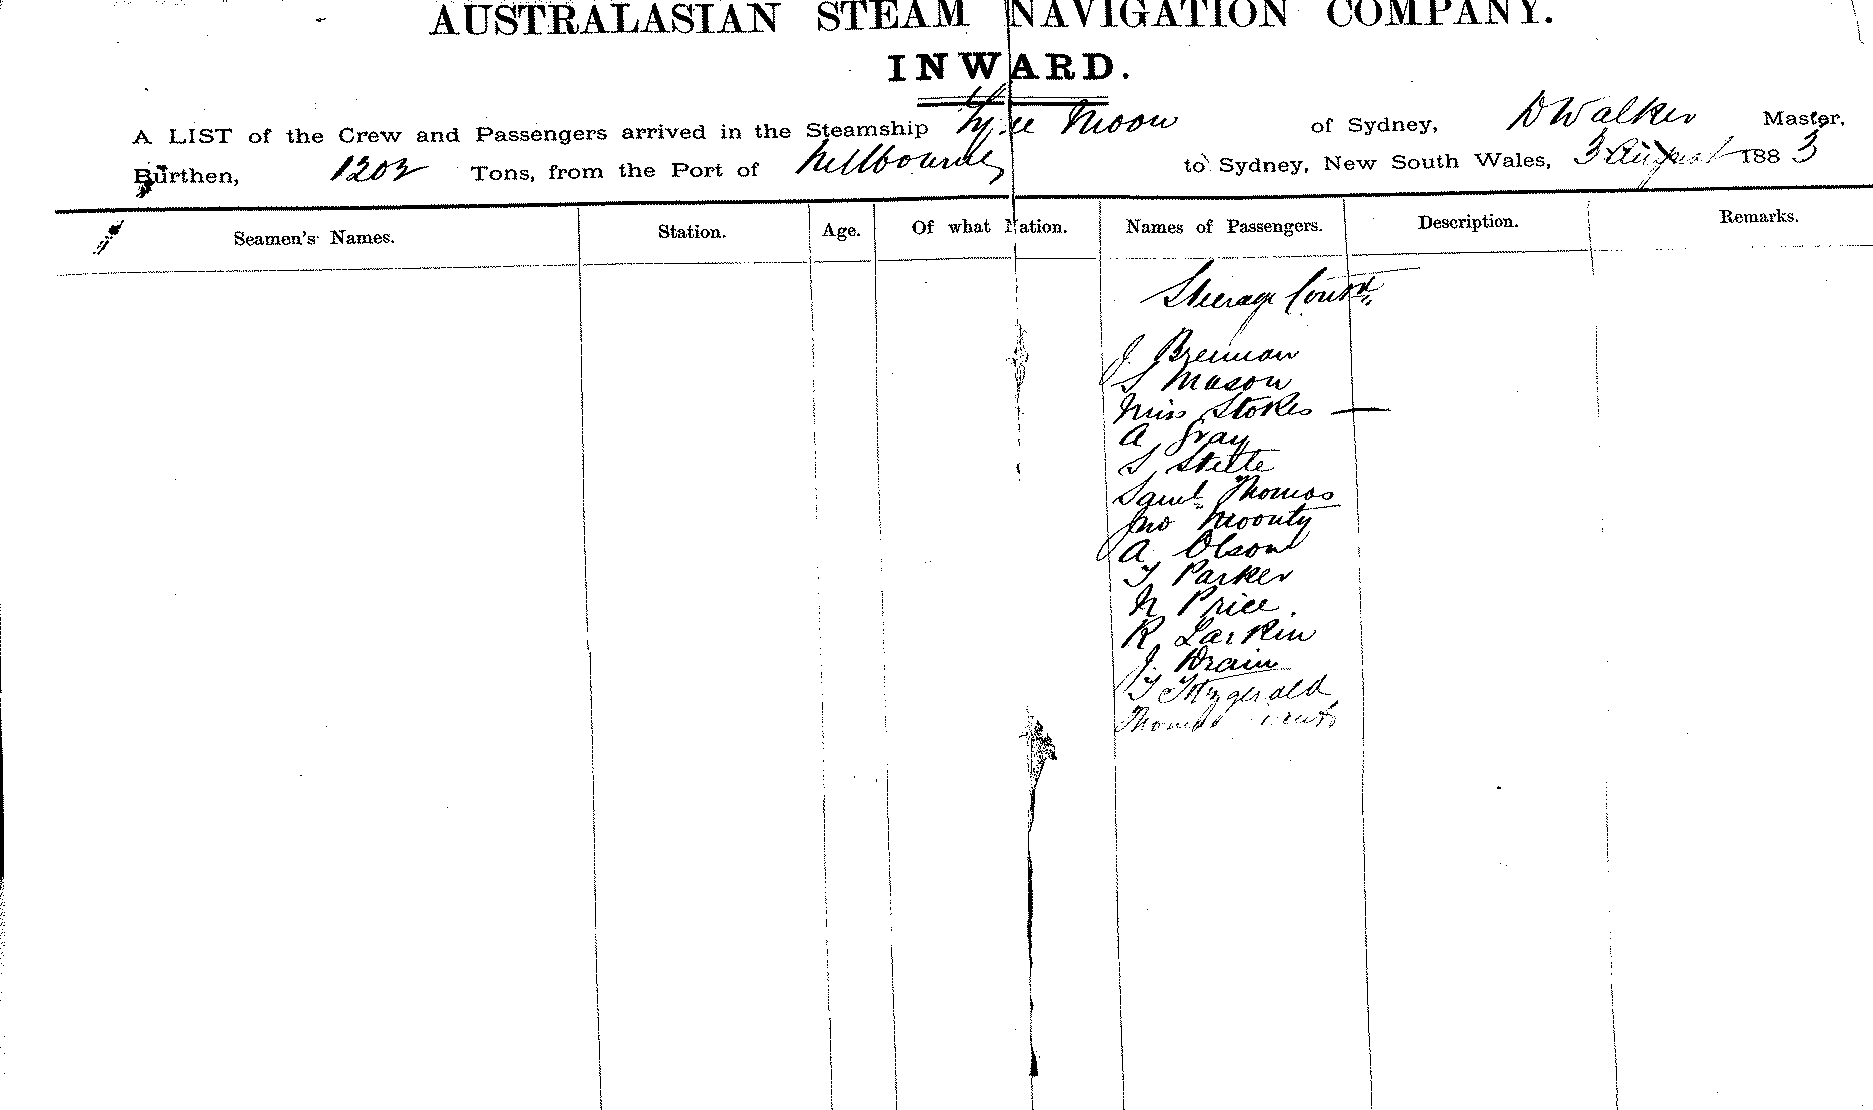 AUSTRALASIAN STEAM NAVIGATION COMPANY.
INWARD.
A LIST of the Crew and Passengers arrived in the Steamship Ly-ee Moon of Sydney, D Walker Master,
Burthen, 1202 Tons, from the Port of Melbourne to Sydney, New South Wales, 3 August 1883
Seamen's Names. Station. Age. Of what Nation. Names of Passengers. Description. Remarks.
Steerage Contd
J. Brennan
S Mason
Miss Stokes —
A Gray
S
Saml Thomas
Jno
A Olson
T Parker
N Price.
R Larkin
J. Drain
T Fitzgerald
Thomas